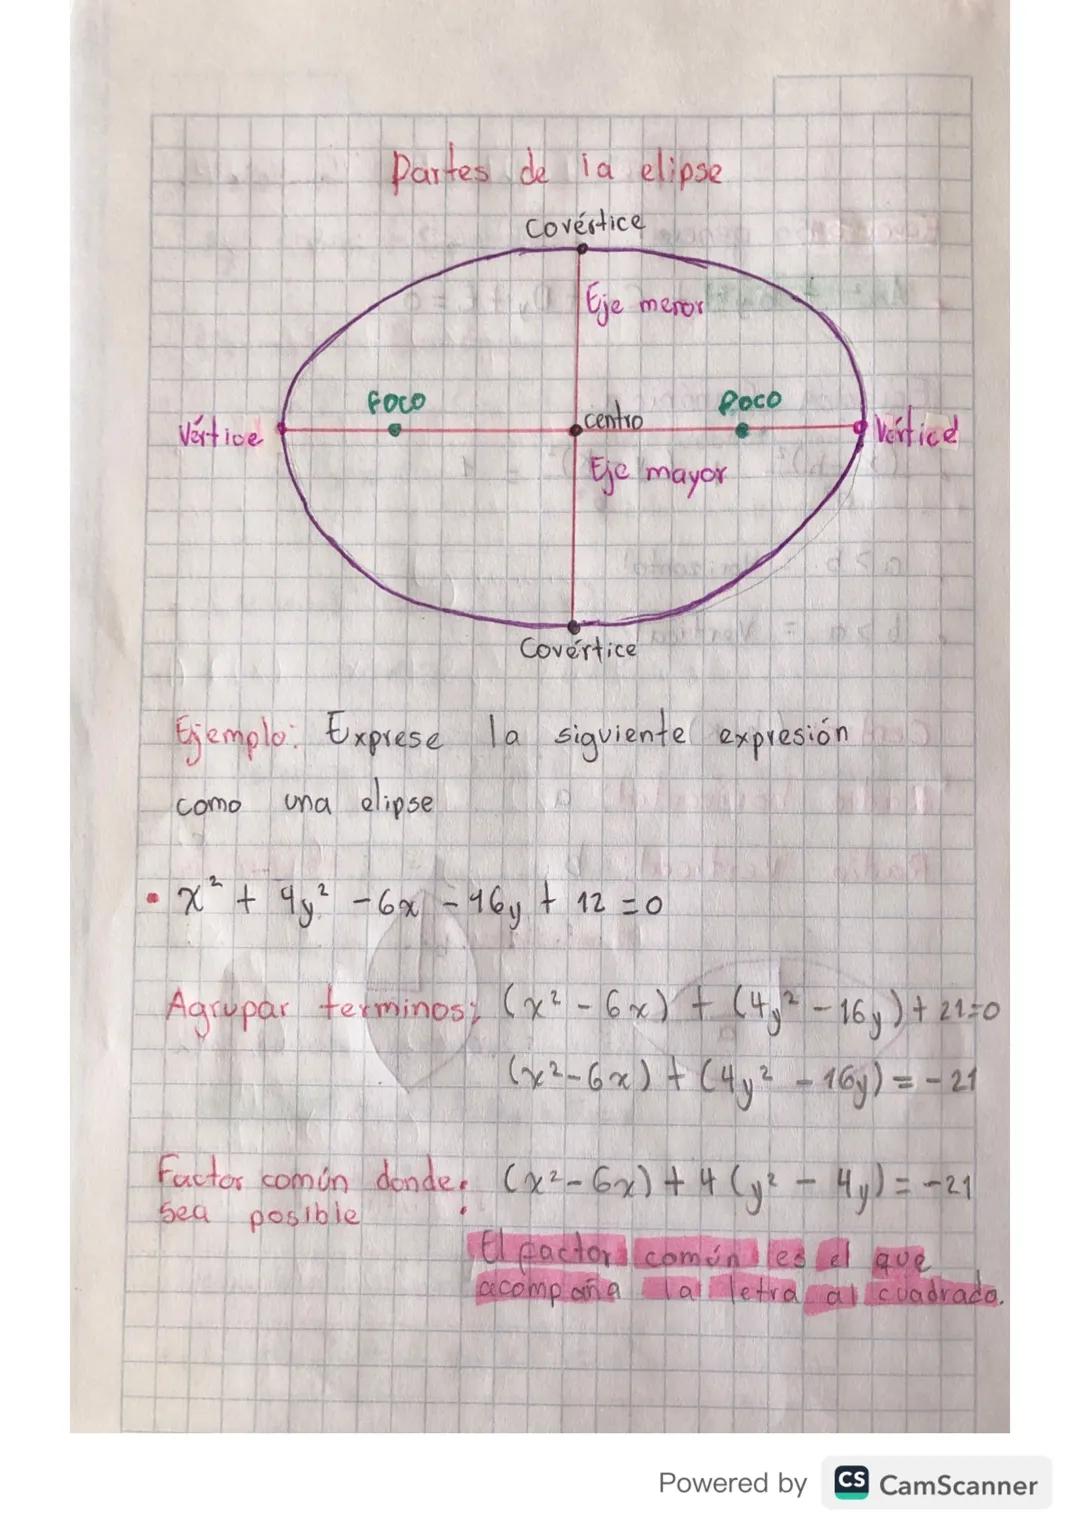 Partes de la elipse
Covértice
Eje menor
foco
foco
Vértice
centro
Vértice
Eje mayor
Covértice
Ejemplo: Exprese la siguiente expresión
como una elipse
• x² + 4y² - 6x - 16y + 12 = 0
Agrupar terminos: (x² - 6x) + (4y² - 16y) + 21=0
(x² - 6x) + (4y² - 16y) = -21
Factor común donde: (x² - 6x) + 4 (y² - 4y) = -21
sea posible
El factor común es el que
acompaña la letra al cuadrado.
Powered by CS CamScanner